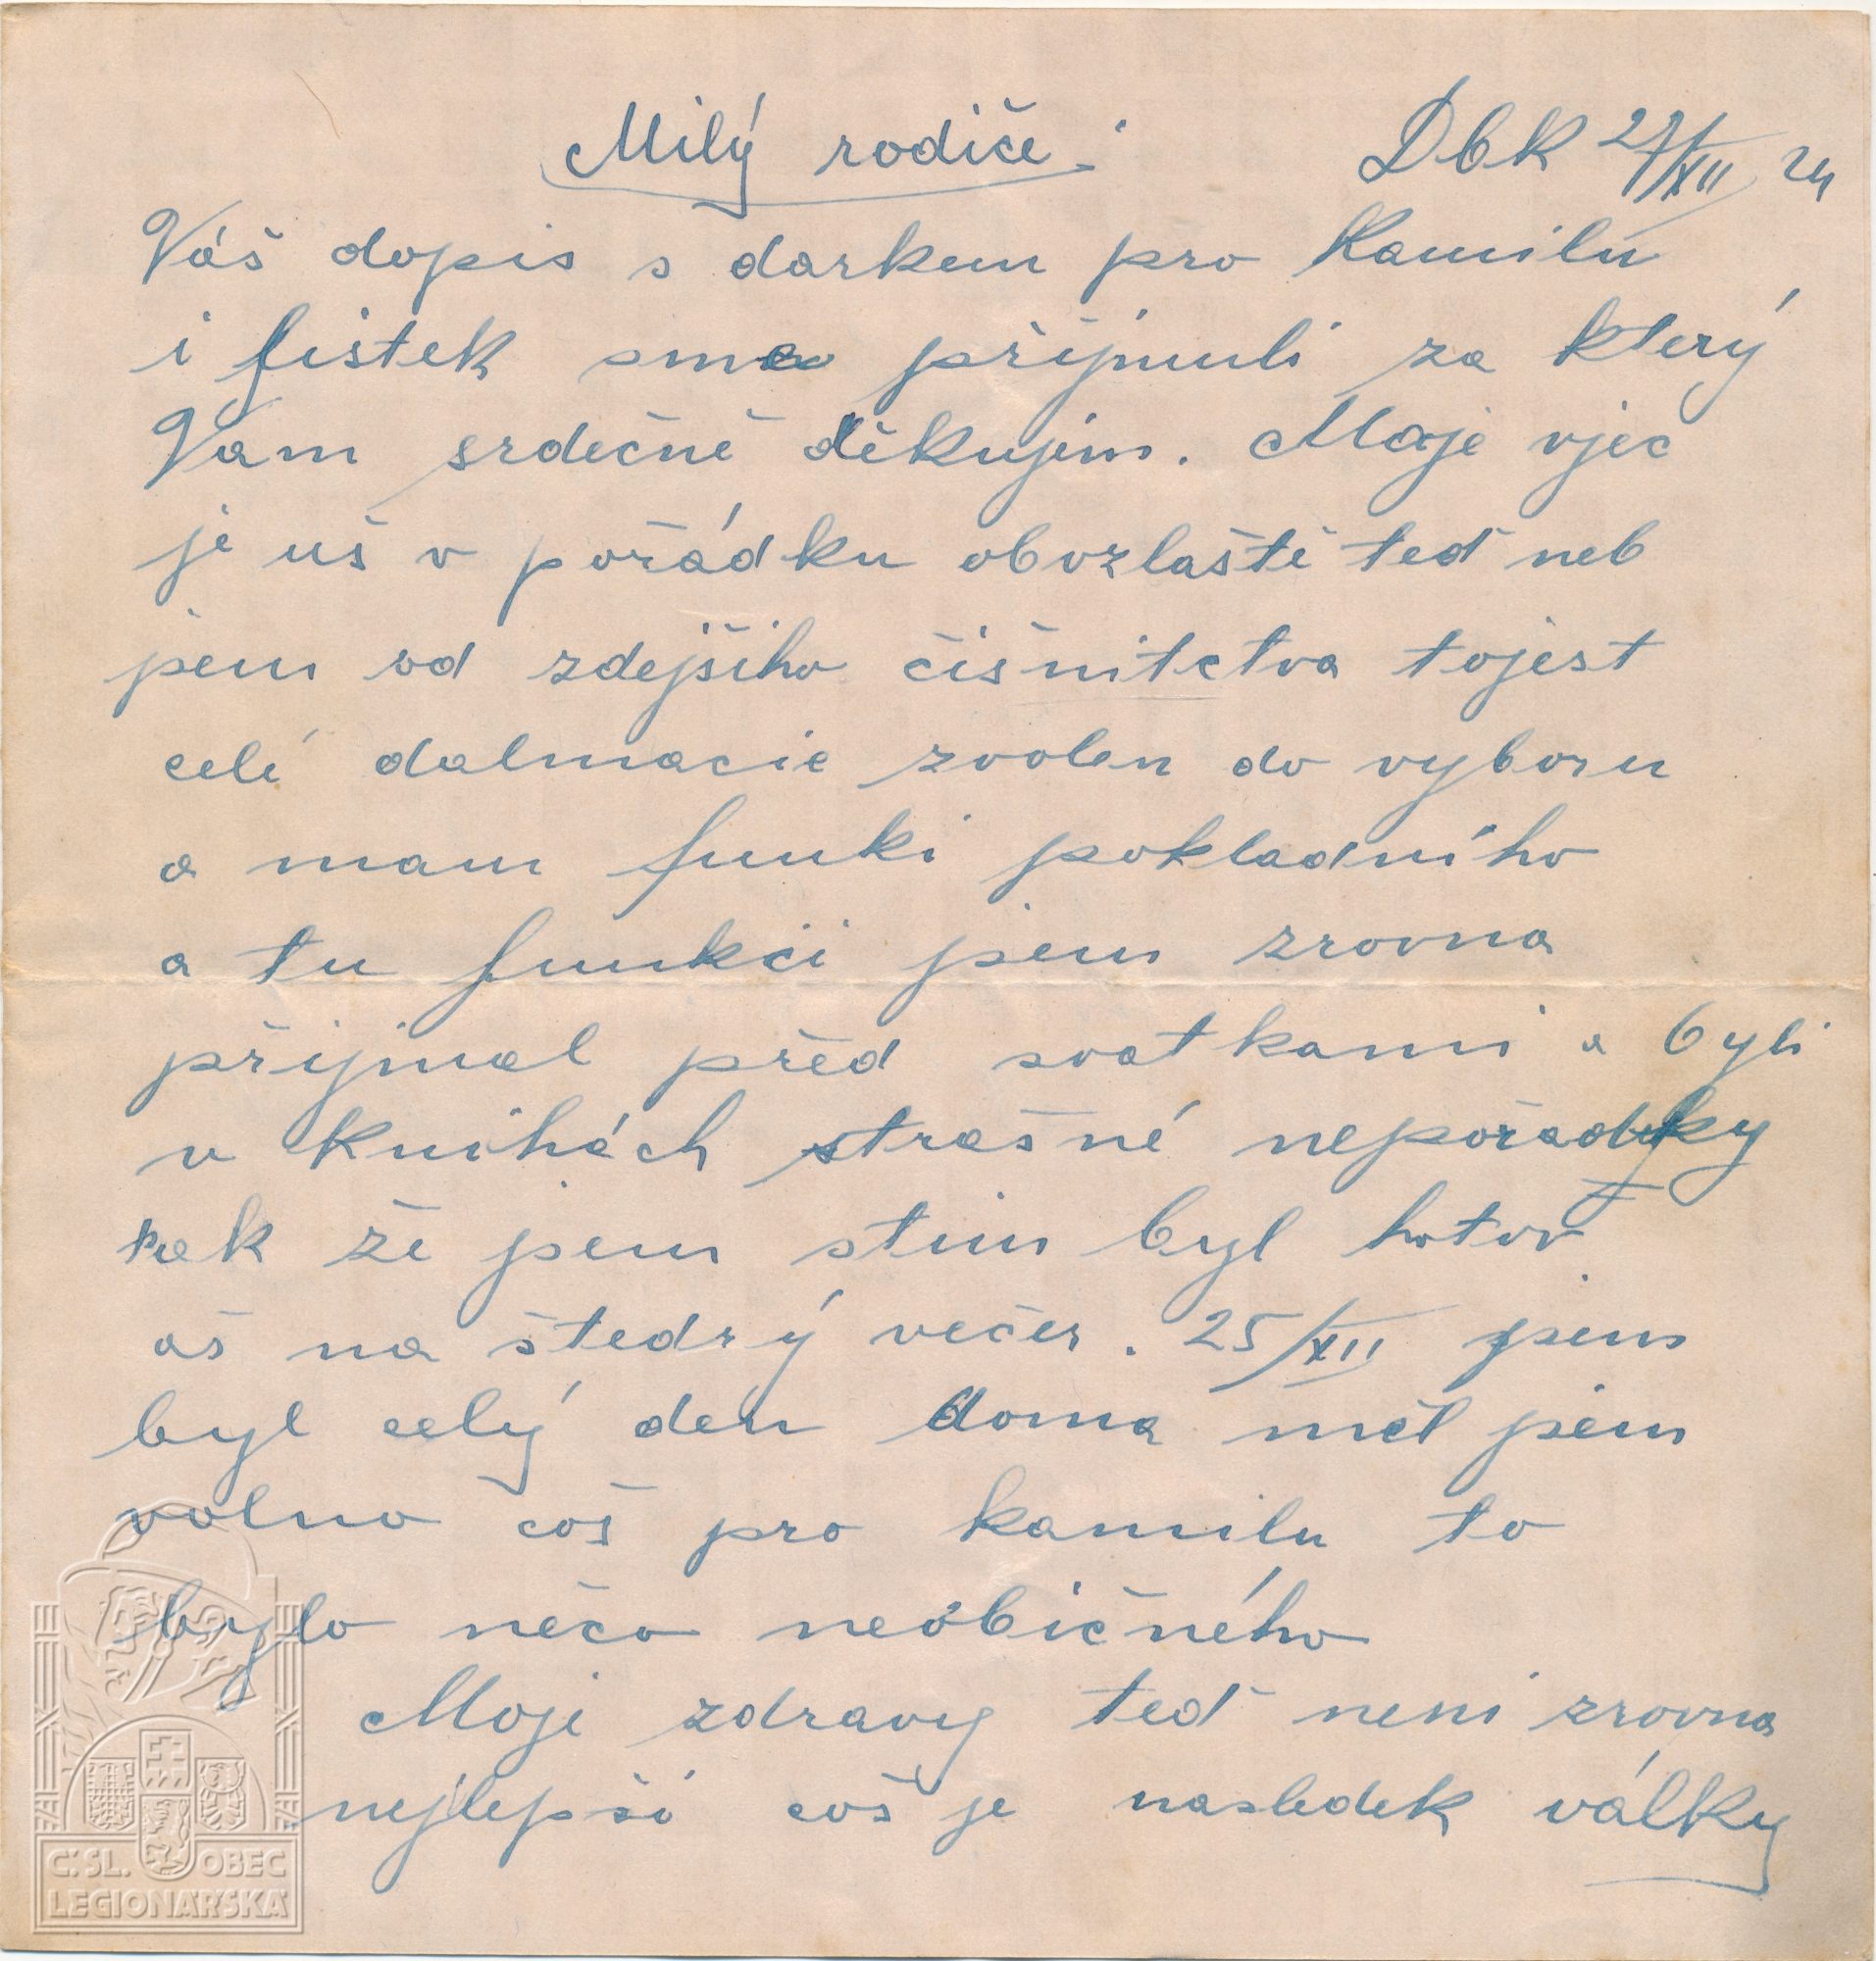 Milý rodiče: Dbk 27/XII 24
Váš dopis s darkem pro Kamilu
i listek sme přijmuli za který
Vam srdečně děkujem. Moje vjec
je uš v pořádku obvzlaště teď neb
jsem od zdejšiho čišnictctva tojest
celé dalmacie zvolen do vyboru
a mam funki pokladního
a tu funkci jsem zrovna
přijmal před svatkami a byli
v knihách strašné nepořadky
tak že jsem stim byl hotov
aš na štedrý večer. 25/XII jsem
byl celý den doma měl jsem
volno coš pro kamilu to
bylo něco neobičného
Moje zdravy teď neni zrovna
nejlepší coš je nasledek války
Č. SL. OBEC
LEGIONÁŘSKÁ